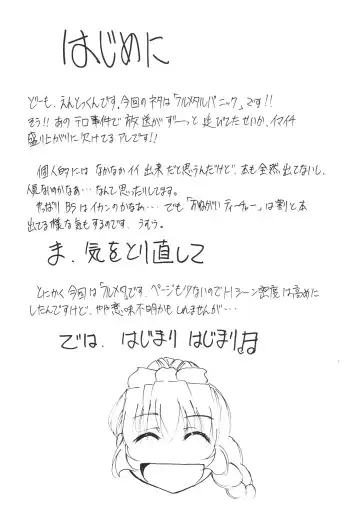 はじめに
どーも、えんとっくんです。今回のネタは「フルメタルパニック」です!!
そう!! あのテロ事件で放送がずーっと延びてたせいか、イマイチ
盛り上がりに欠けてるアレです!!
個人的にはなかなかイイ出来だと思うんだけど、本も全然出てないし、
人気ないのかなあ…なんて思ったりしてます。
やっぱりBSはイカンのかなあ…でも「おねがいティーチャー」は割と本
出てる様な気もするのです、うむう。
ま、気をとり直して
とにかく今回は「フルメタ」です、ページも少ないのでHシーン密度は高めに
したんですけど、やや意味不明かもしれませんが…
では、はじまりはじまりぃ